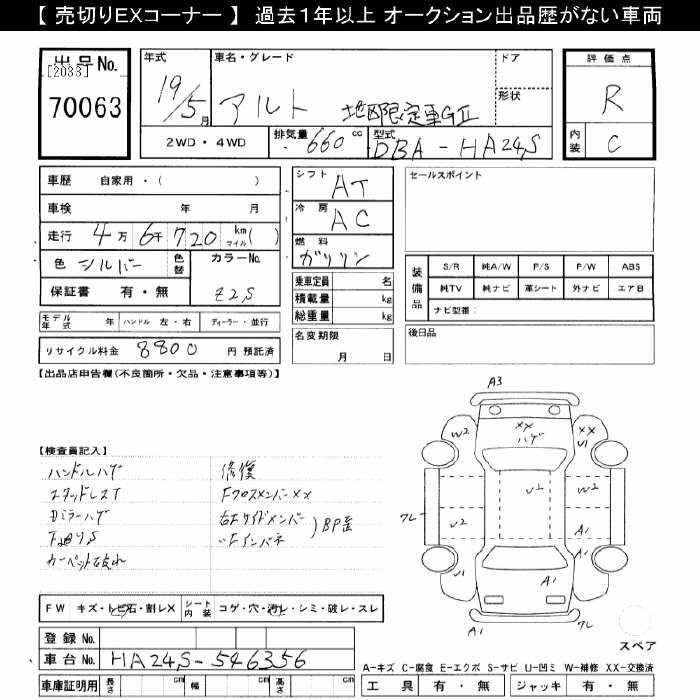 【 売切りEXコーナー 】 過去1年以上 オークション出品歴がない車両
出品No.
[2033]
70063
年式 19/5月
車名・グレード アルト 地区限定車GII
ドア
形状
2WD ・ 4WD
排気量 660 cc
型式 DBA - HA24S
評価点 R
内装 C
車歴 自家用・( )
車検 年 月
走行 4万 6千 720 km マイル( )
色 シルバー 色替 カラーNo. Z2S
保証書 有 ・ 無
モデル年式 年 ハンドル 左・右 ディーラー・並行
リサイクル料金 8800 円 預託済
シフト AT
冷房 AC
燃料 ガソリン
乗車定員 名
積載量 kg
総重量 kg
名変期限
月 日
セールスポイント
装備品
S/R 純A/W P/S P/W ABS
純TV 純ナビ 革シート 外ナビ エアB
ナビ型番:
後日品
【出品店申告欄(不良箇所・欠品・注意事項等)】
【検査員記入】
ハンドルハゲ
スタッドレスT
Dミラーハゲ
カーペット汚れ
修復
FクロスメンバーXX
右Fサイドメンバー
〃Fインパネ
BP歪
A3
W2
XX
ハゲ
XX
U1
U2
U1
W2
フレ
A1
A1
U1
A1
フレ
スペア
FW キズ・トビ石・割レX シート内装 コゲ・穴・汚レ・シミ・破レ・スレ
登録 No.
車台 No. HA24S-546356
車庫証明用 長さ cm 幅 cm 高さ cm
A-キズ C-腐食 E-エクボ S-サビ U-凹ミ W-補修 XX-交換済
工具 有 ・ 無 ジャッキ 有 ・ 無